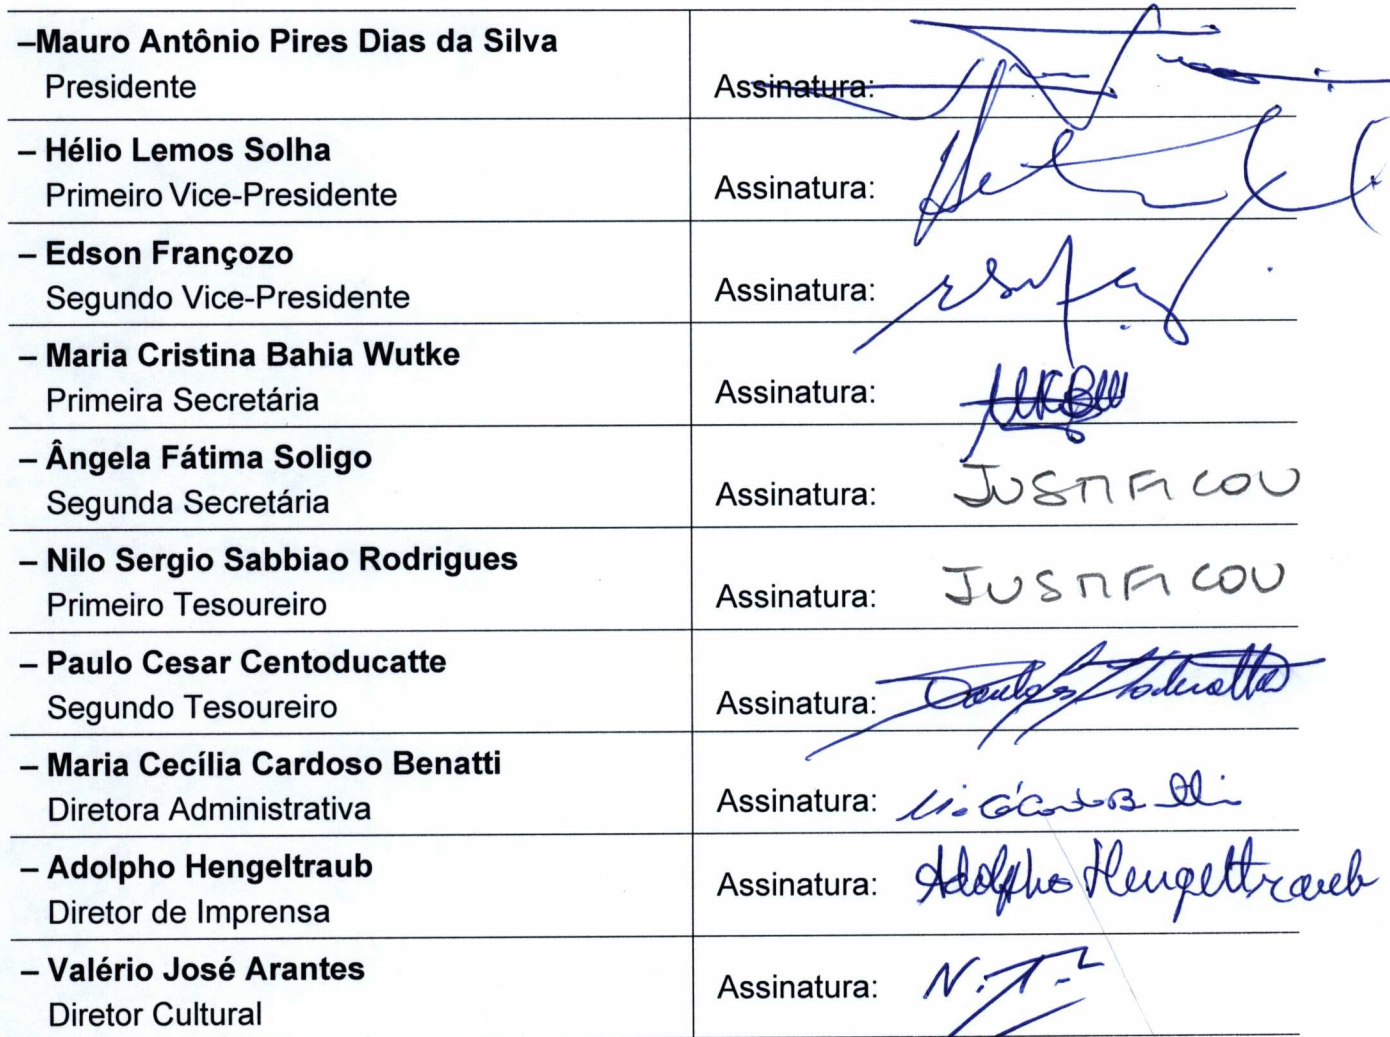 –Mauro Antônio Pires Dias da Silva
Presidente
Assinatura:
– Hélio Lemos Solha
Primeiro Vice-Presidente
Assinatura:
– Edson Françozo
Segundo Vice-Presidente
Assinatura:
– Maria Cristina Bahia Wutke
Primeira Secretária
Assinatura:
– Ângela Fátima Soligo
Segunda Secretária
Assinatura: JUSTIFICOU
– Nilo Sergio Sabbiao Rodrigues
Primeiro Tesoureiro
Assinatura: JUSTIFICOU
– Paulo Cesar Centoducatte
Segundo Tesoureiro
Assinatura:
– Maria Cecília Cardoso Benatti
Diretora Administrativa
Assinatura:
– Adolpho Hengeltraub
Diretor de Imprensa
Assinatura: Adolpho Hengeltraub
– Valério José Arantes
Diretor Cultural
Assinatura: